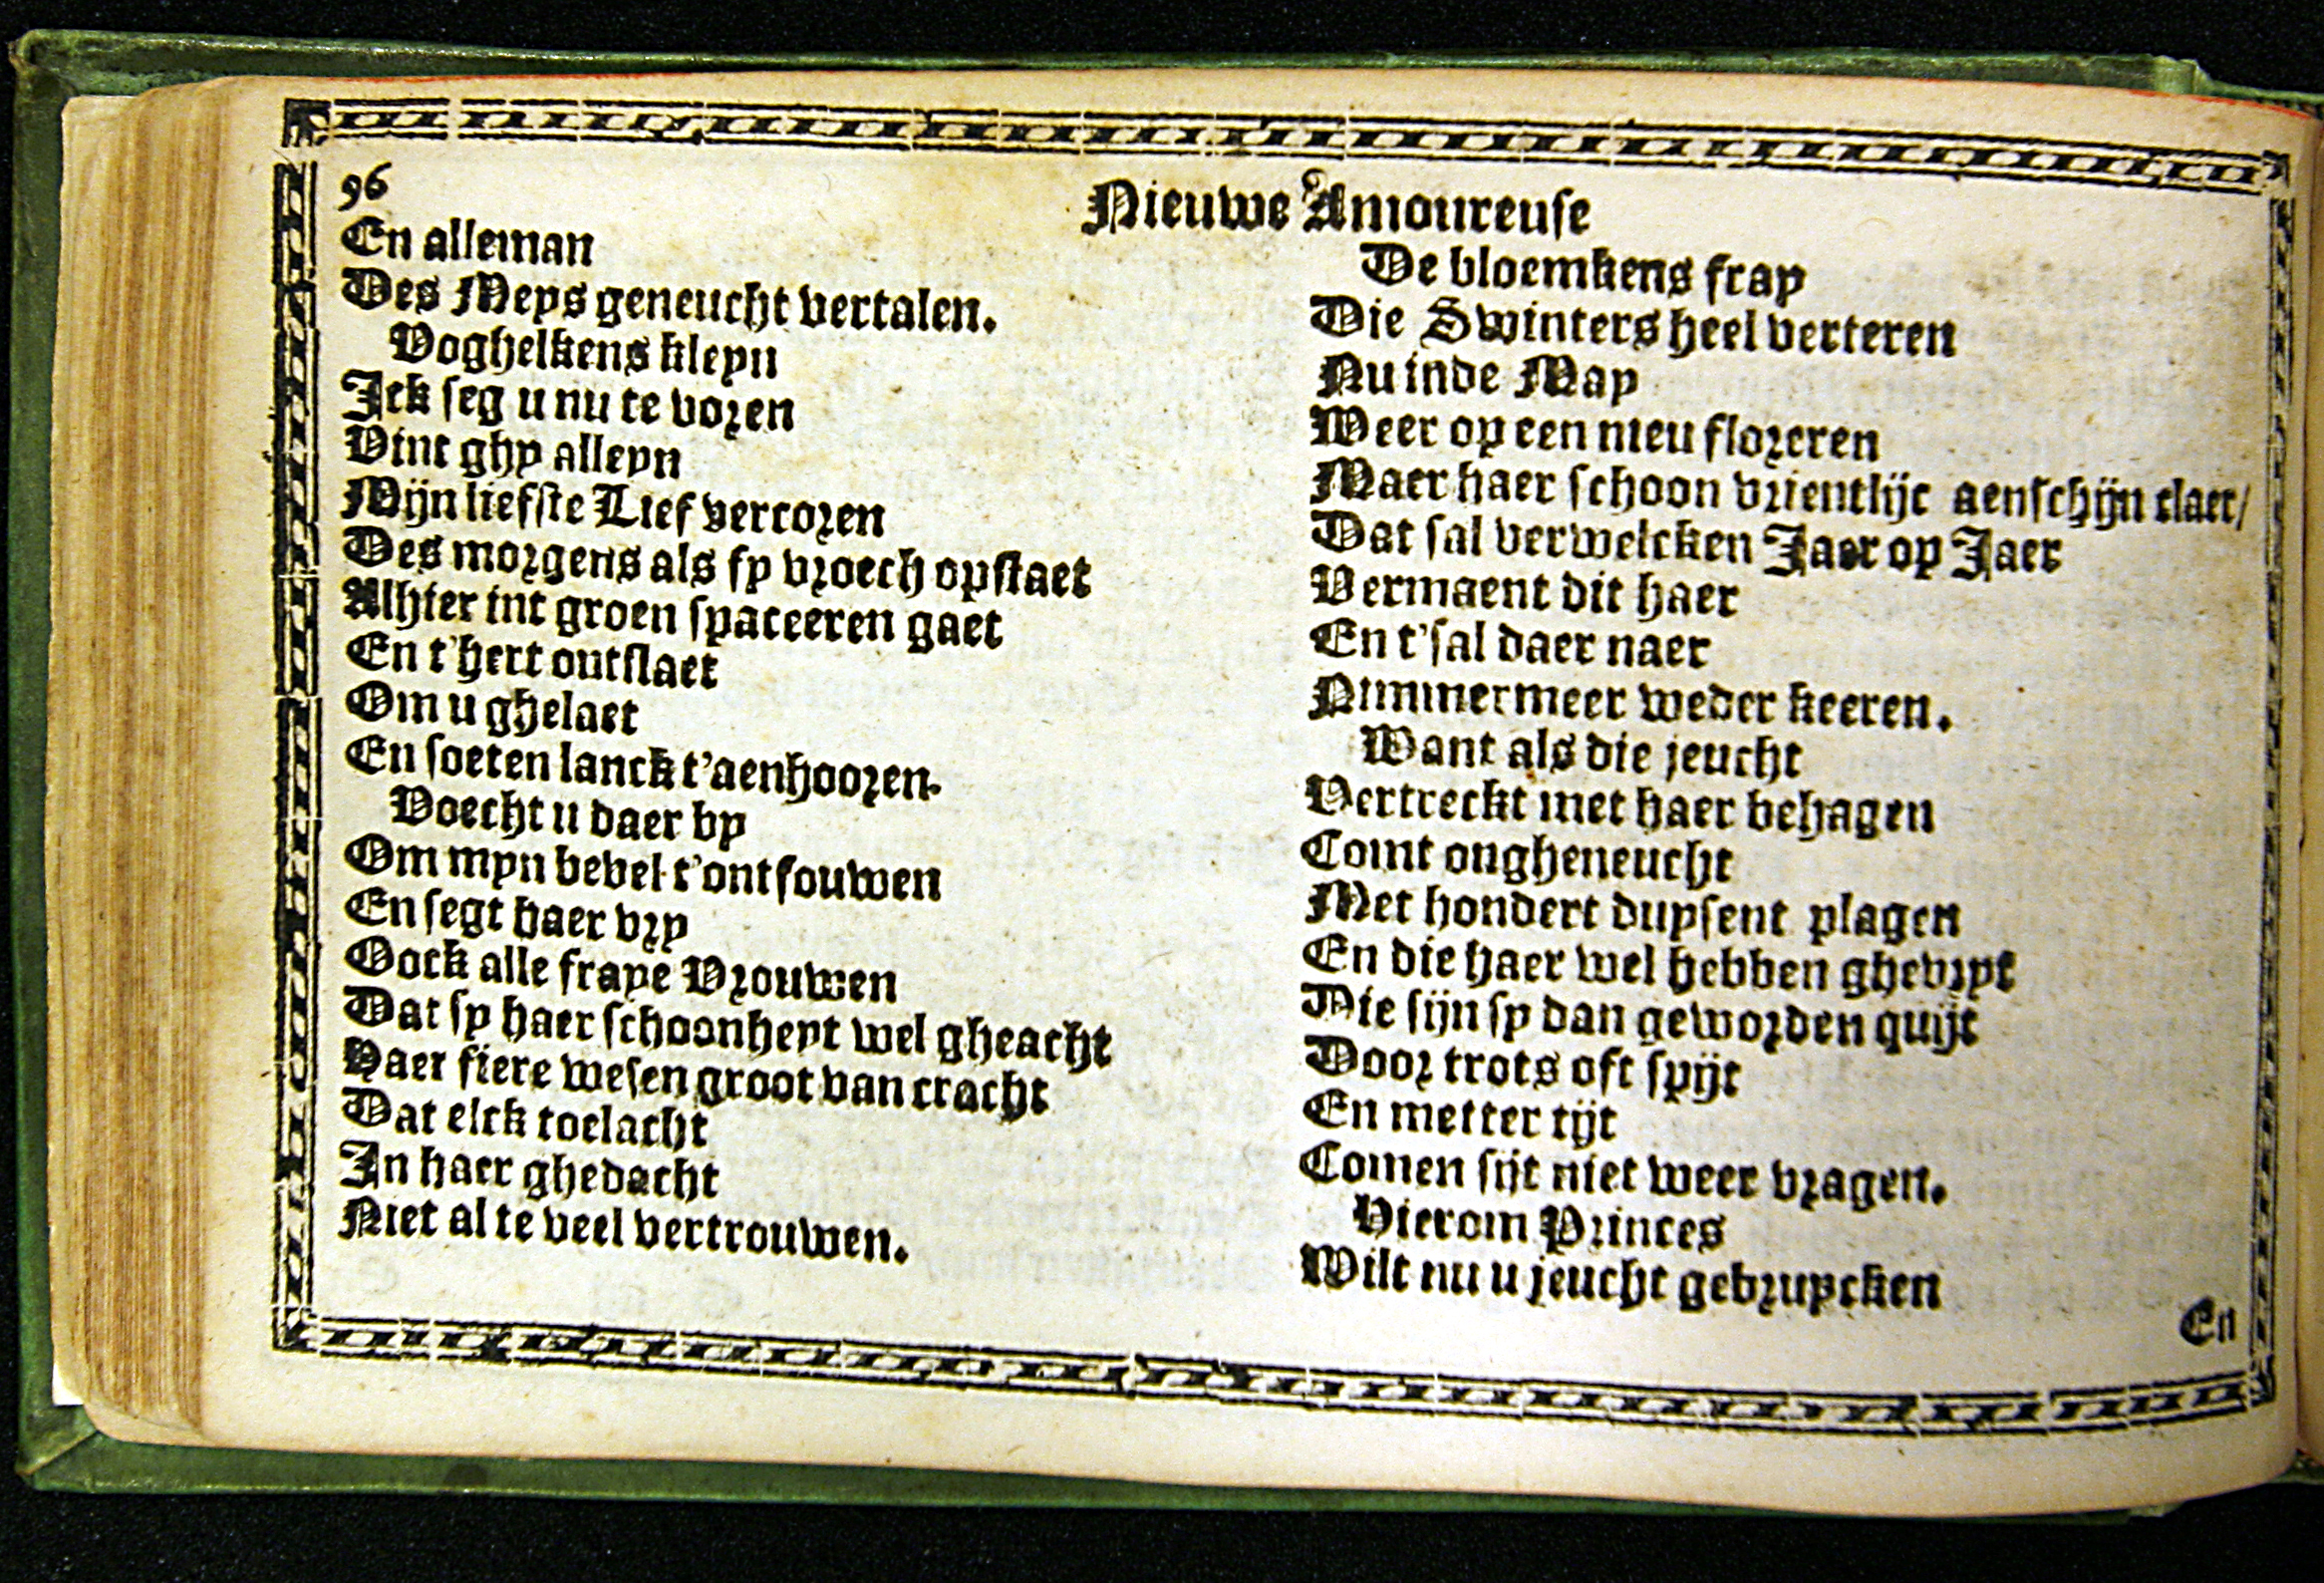 96
Nieuwe Amoureuse
En alleman
Des Meys geneucht vertalen.
Voghelkens kleyn
Jck seg u nu te voren
Vint ghy alleyn
Mijn liefste Lief vercoren
Des morgens als sy vroech opstaet
Alhier int groen spaceeren gaet
En t'hert ontslaet
Om u ghelaet
En soeten lanck t'aenhooren.
Voecht u daer by
Om myn bevel t'ontfouwen
En segt haer vry
Oock alle fraye Vrouwen
Dat sy haer schoonheyt wel gheacht
Haer fiere wesen groot van cracht
Dat elck toelacht
In haer ghedacht
Niet al te veel vertrouwen.
De bloemkens fray
Die Swinters heel verteren
Nu inde May
Weer op een nieu floreren
Maer haer schoon vrientlijc aenschijn claer/
Dat sal verwelcken Jaer op Jaer
Vermaent dit haer
En t'sal daer naer
Nimmermeer weder keeren.
Want als die jeucht
Vertreckt met haer behagen
Comt ongheneucht
Met hondert duysent plagen
En die haer wel hebben ghevryt
Die sijn sy dan geworden quijt
Door trots oft spijt
En metter tijt
Comen sijt niet weer vragen.
Hierom Princes
Wilt nu u jeucht gebruycken
En